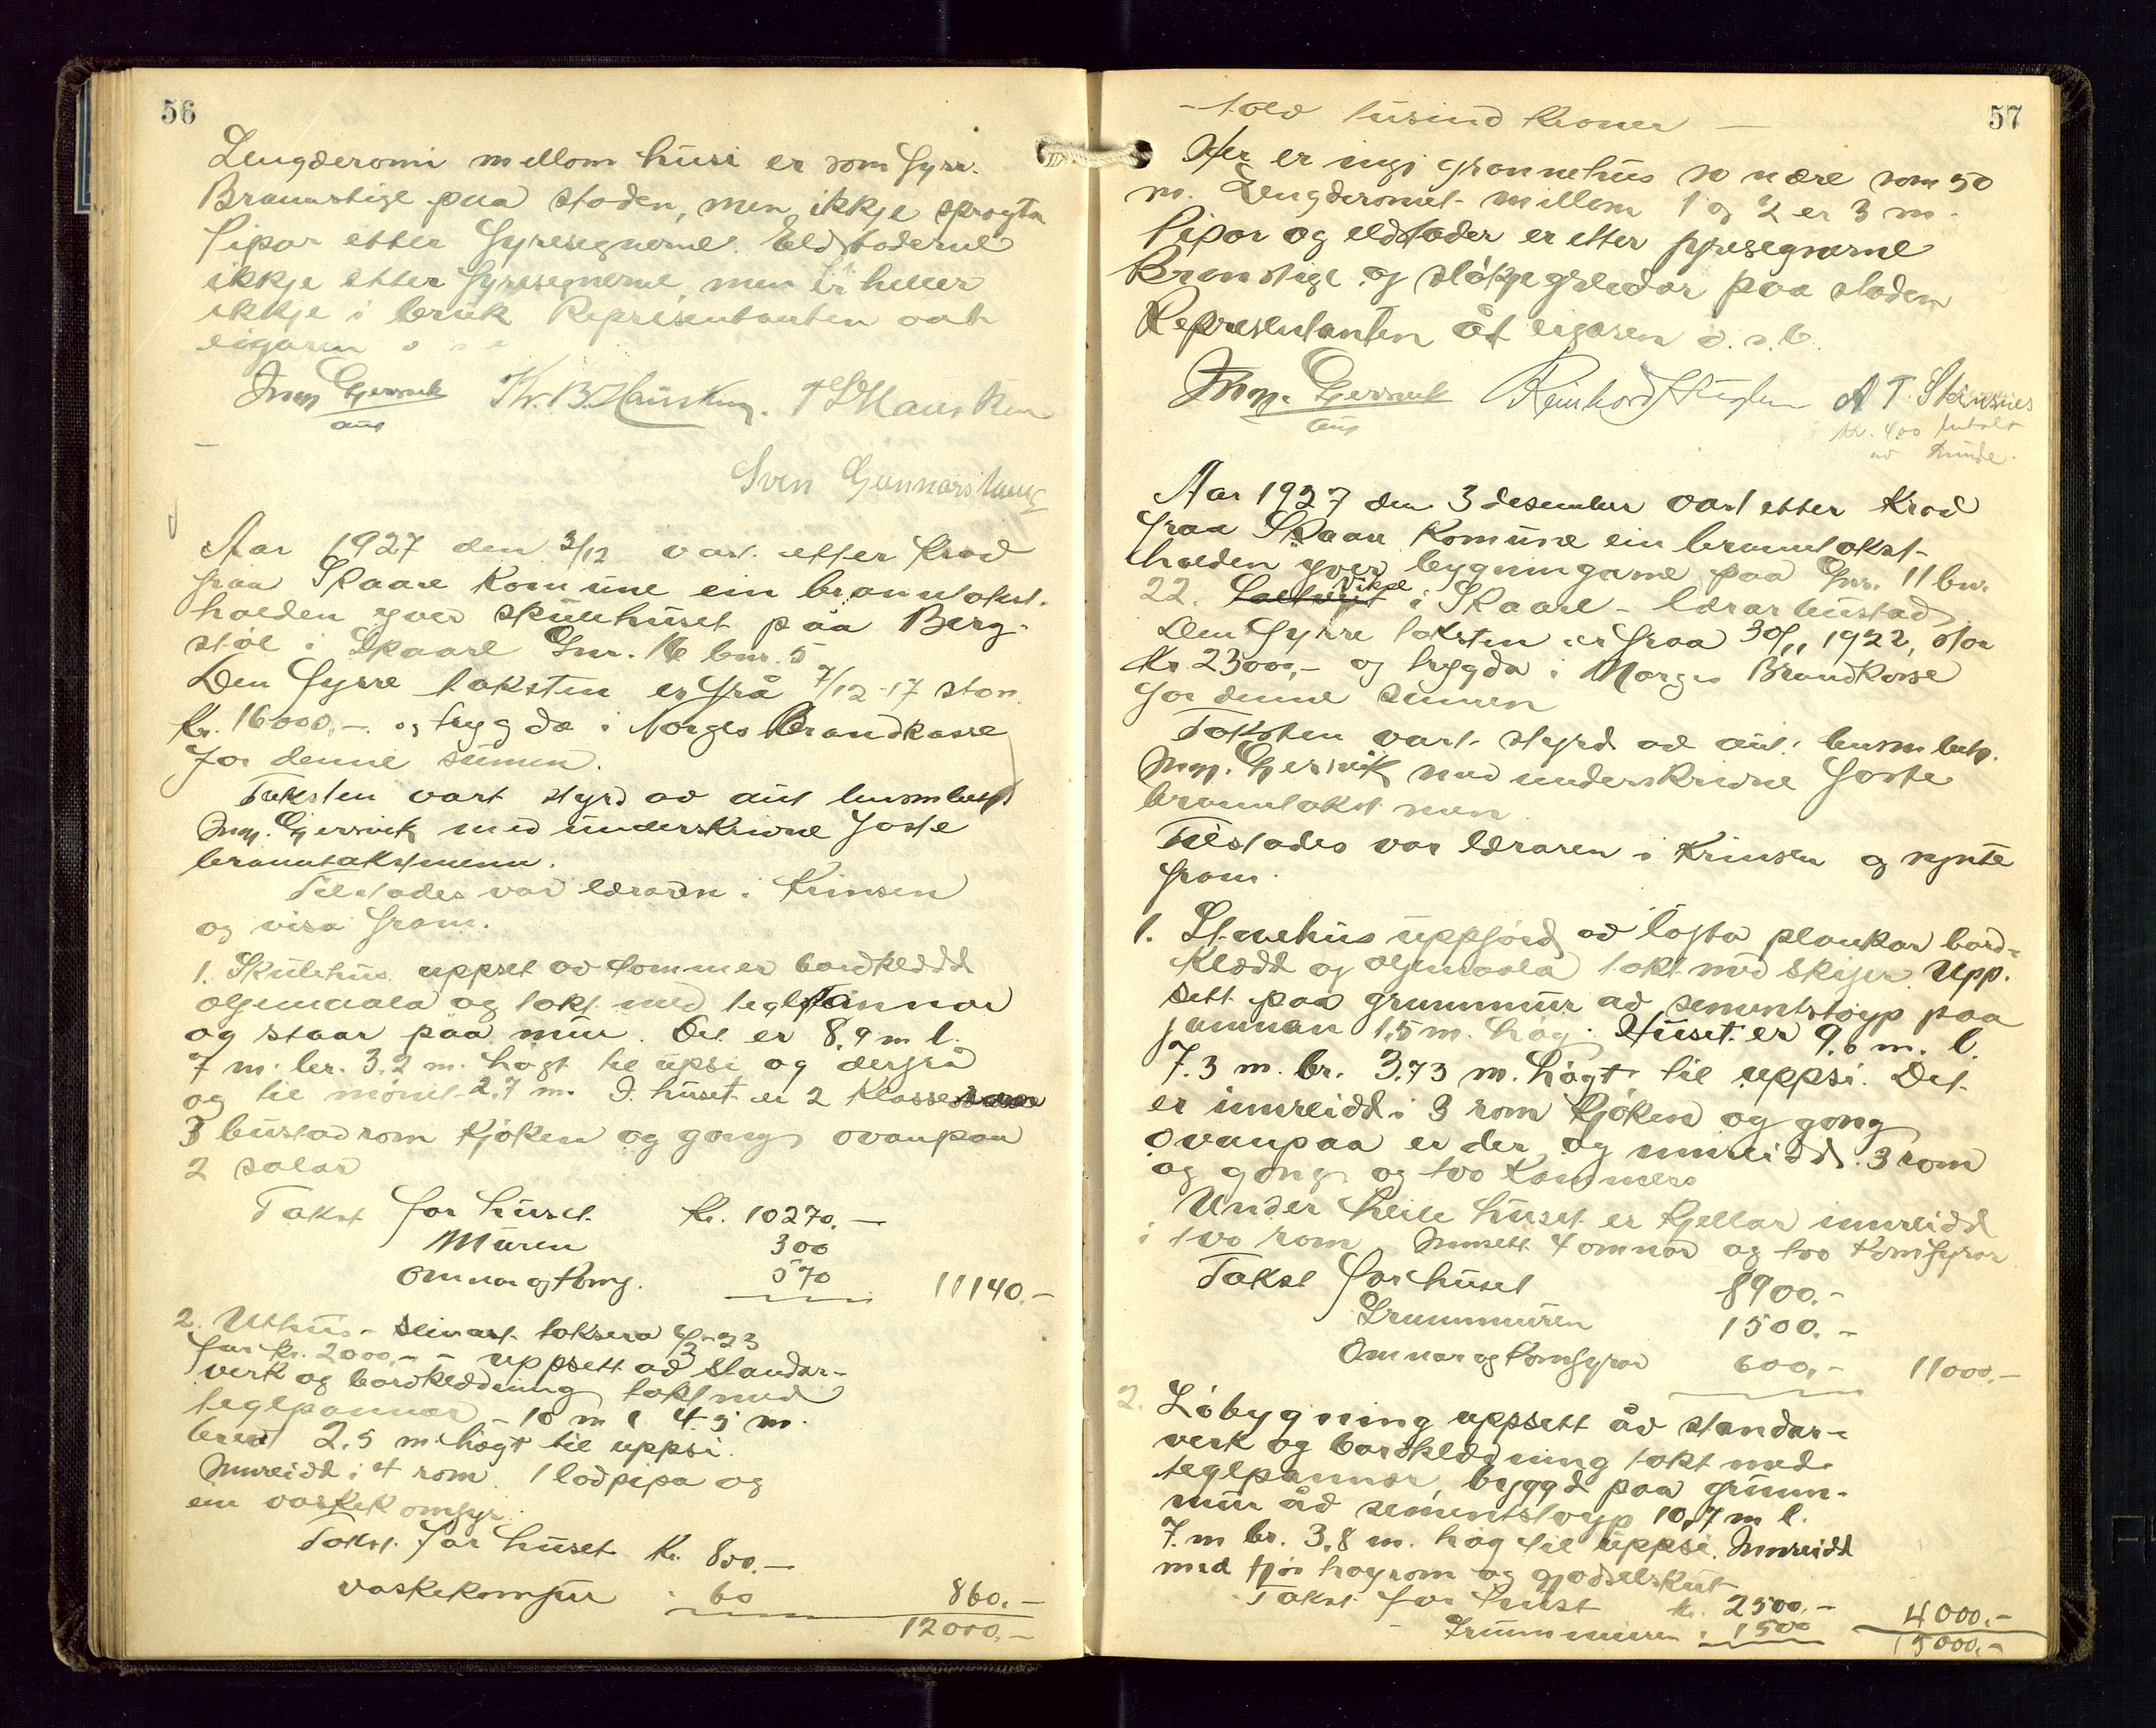 56
Lengderomi mellom husi er som fyrr.
Brannstige paa staden, men ikkje sprøyta
Pipor etter fyresegnerne. Eldstaderne
ikkje etter fyresegnerne men er heller
ikkje i bruk Representanten aat
eigaren o s b
Ing. Gjersvik Kr. B. Hausken. T S Hausken
aut
Sven Gunnarshaug
Aar 1927 den 3/12 vart etter krav
fraa Skaare komune ein branntakst.
halden yver skulehuset paa Berg-
støl i Skaare Gnr. 16 bnr. 5
Den fyrre taksten er frå 7/12-17 stor
Kr. 16000,-. og trygda i Norges Brandkasse
for denne sumen.
Taksten vart styrd av aut lensmbetj
Ing. Gjersvik med underskrivne faste
branntakstmenn.
Tilstades var læraren i krinsen
og visa fram.
1. Skulehus uppset av tømmer bordklædd
oljemaala og takt med teglpannor
og staar paa mur. Det er 8,9 m l.
7 m. br. 3.2 m. høgt til upsi og derfrå
og til mønet 2,7 m. I huset er 2 klasse
3 bustadrom kjøken og gang ovanpaa
2 salar
Takst for huset Kr. 10270.-
Muren 300
Omnar og komf. 570 11140.-
2. Uthus - seinast taksera 6/2-23
for kr. 2000,- - uppsett av standar-
verk og bordklædning takt med
teglpannor - 10 m l 4.5 m.
breid 2.5 m. høgt til uppsi.
Innreidd i 4 rom. 1 lodpipa og
ein vaskekomfyr.
Takst for huset Kr. 800.-
vaskekomfur " 60 860.-
12000,-
57
- tolv tusind kroner -
Her er ingi grannehus so nære som 50
m. Lengderomet millom 1 og 2 er 3 m.
Pipor og eldstader er etter fyresegnerne
Branstige og sløkjegreidor paa staden
Representanten åt eigaren o. s. b.
Ing. Gjersvik Reinhard Huglen A T. Steinsnes
aut Kr. 4,00 betalt
av Lunde.
Aar 1927 den 3 desember vart etter krav
fraa Skaare komune ein branntakst-
halden yver bygningane paa Gnr. 11 bn.
22. Saltveit Vikse i Skaare - lærarbustad
Den fyrre taksten er fraa 30/11 1922, stor
Kr 23000,- og trygda i Norges Brandkasse
for denne sumen
Taksten vart styrd av aut. lensm betj.
Ing. Gjersvik med underskrivne faste
branntakstmen
Tilstades var læraren i krinsen og synte
fram.
1. Stovehus uppførd av lafta plankar bord-
klædd og oljemaala takt med skifer. Upp-
sett paa grunnmur av sementstøyp paa
jamnan 1.5 m. høg. Huset er 9.6 m. l.
7.3 m. br. 3.73 m. høgt til uppsi. Det
er innreidd i 3 rom kjøken og gong
ovanpaa er der og innreidd 3 rom
og gong og tvo kammers
Under heile huset er kjellar innreidd
i tvo rom Innsett 4 omnar og tvo komfyrar
Takst for huset 8900.-
Grunnmuren 1500.-
Omnar og komfyrar 600,- 11000.-
2. Løbygning uppsett åv standar-
verk og bordklædning takt med
teglpannor, byggd paa grunn-
mur åv sementstøyp 10,7 m l.
7. m br. 3,8 m. høg til uppsi. Innreidd
med fjøs høyrom og gjødselskut
Takst for huset kr. 2500,-
- Grunnmuren " 1500 4000.-
15000.-